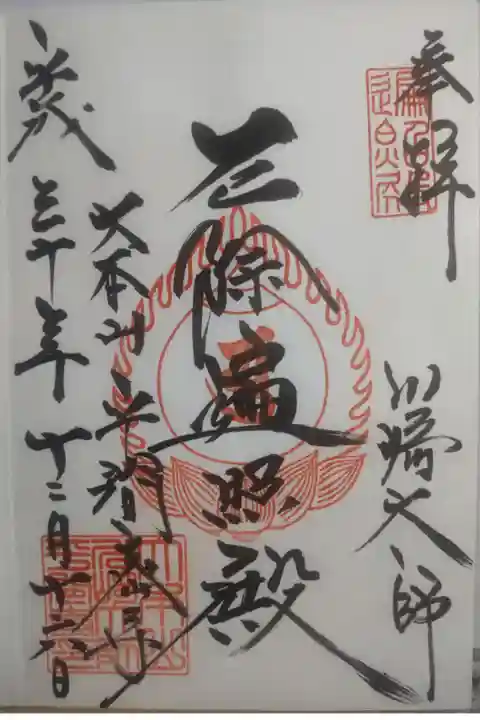 奉拝
川崎大師
厄除遍照殿
大本山平間寺
平成三十年十二月十六日